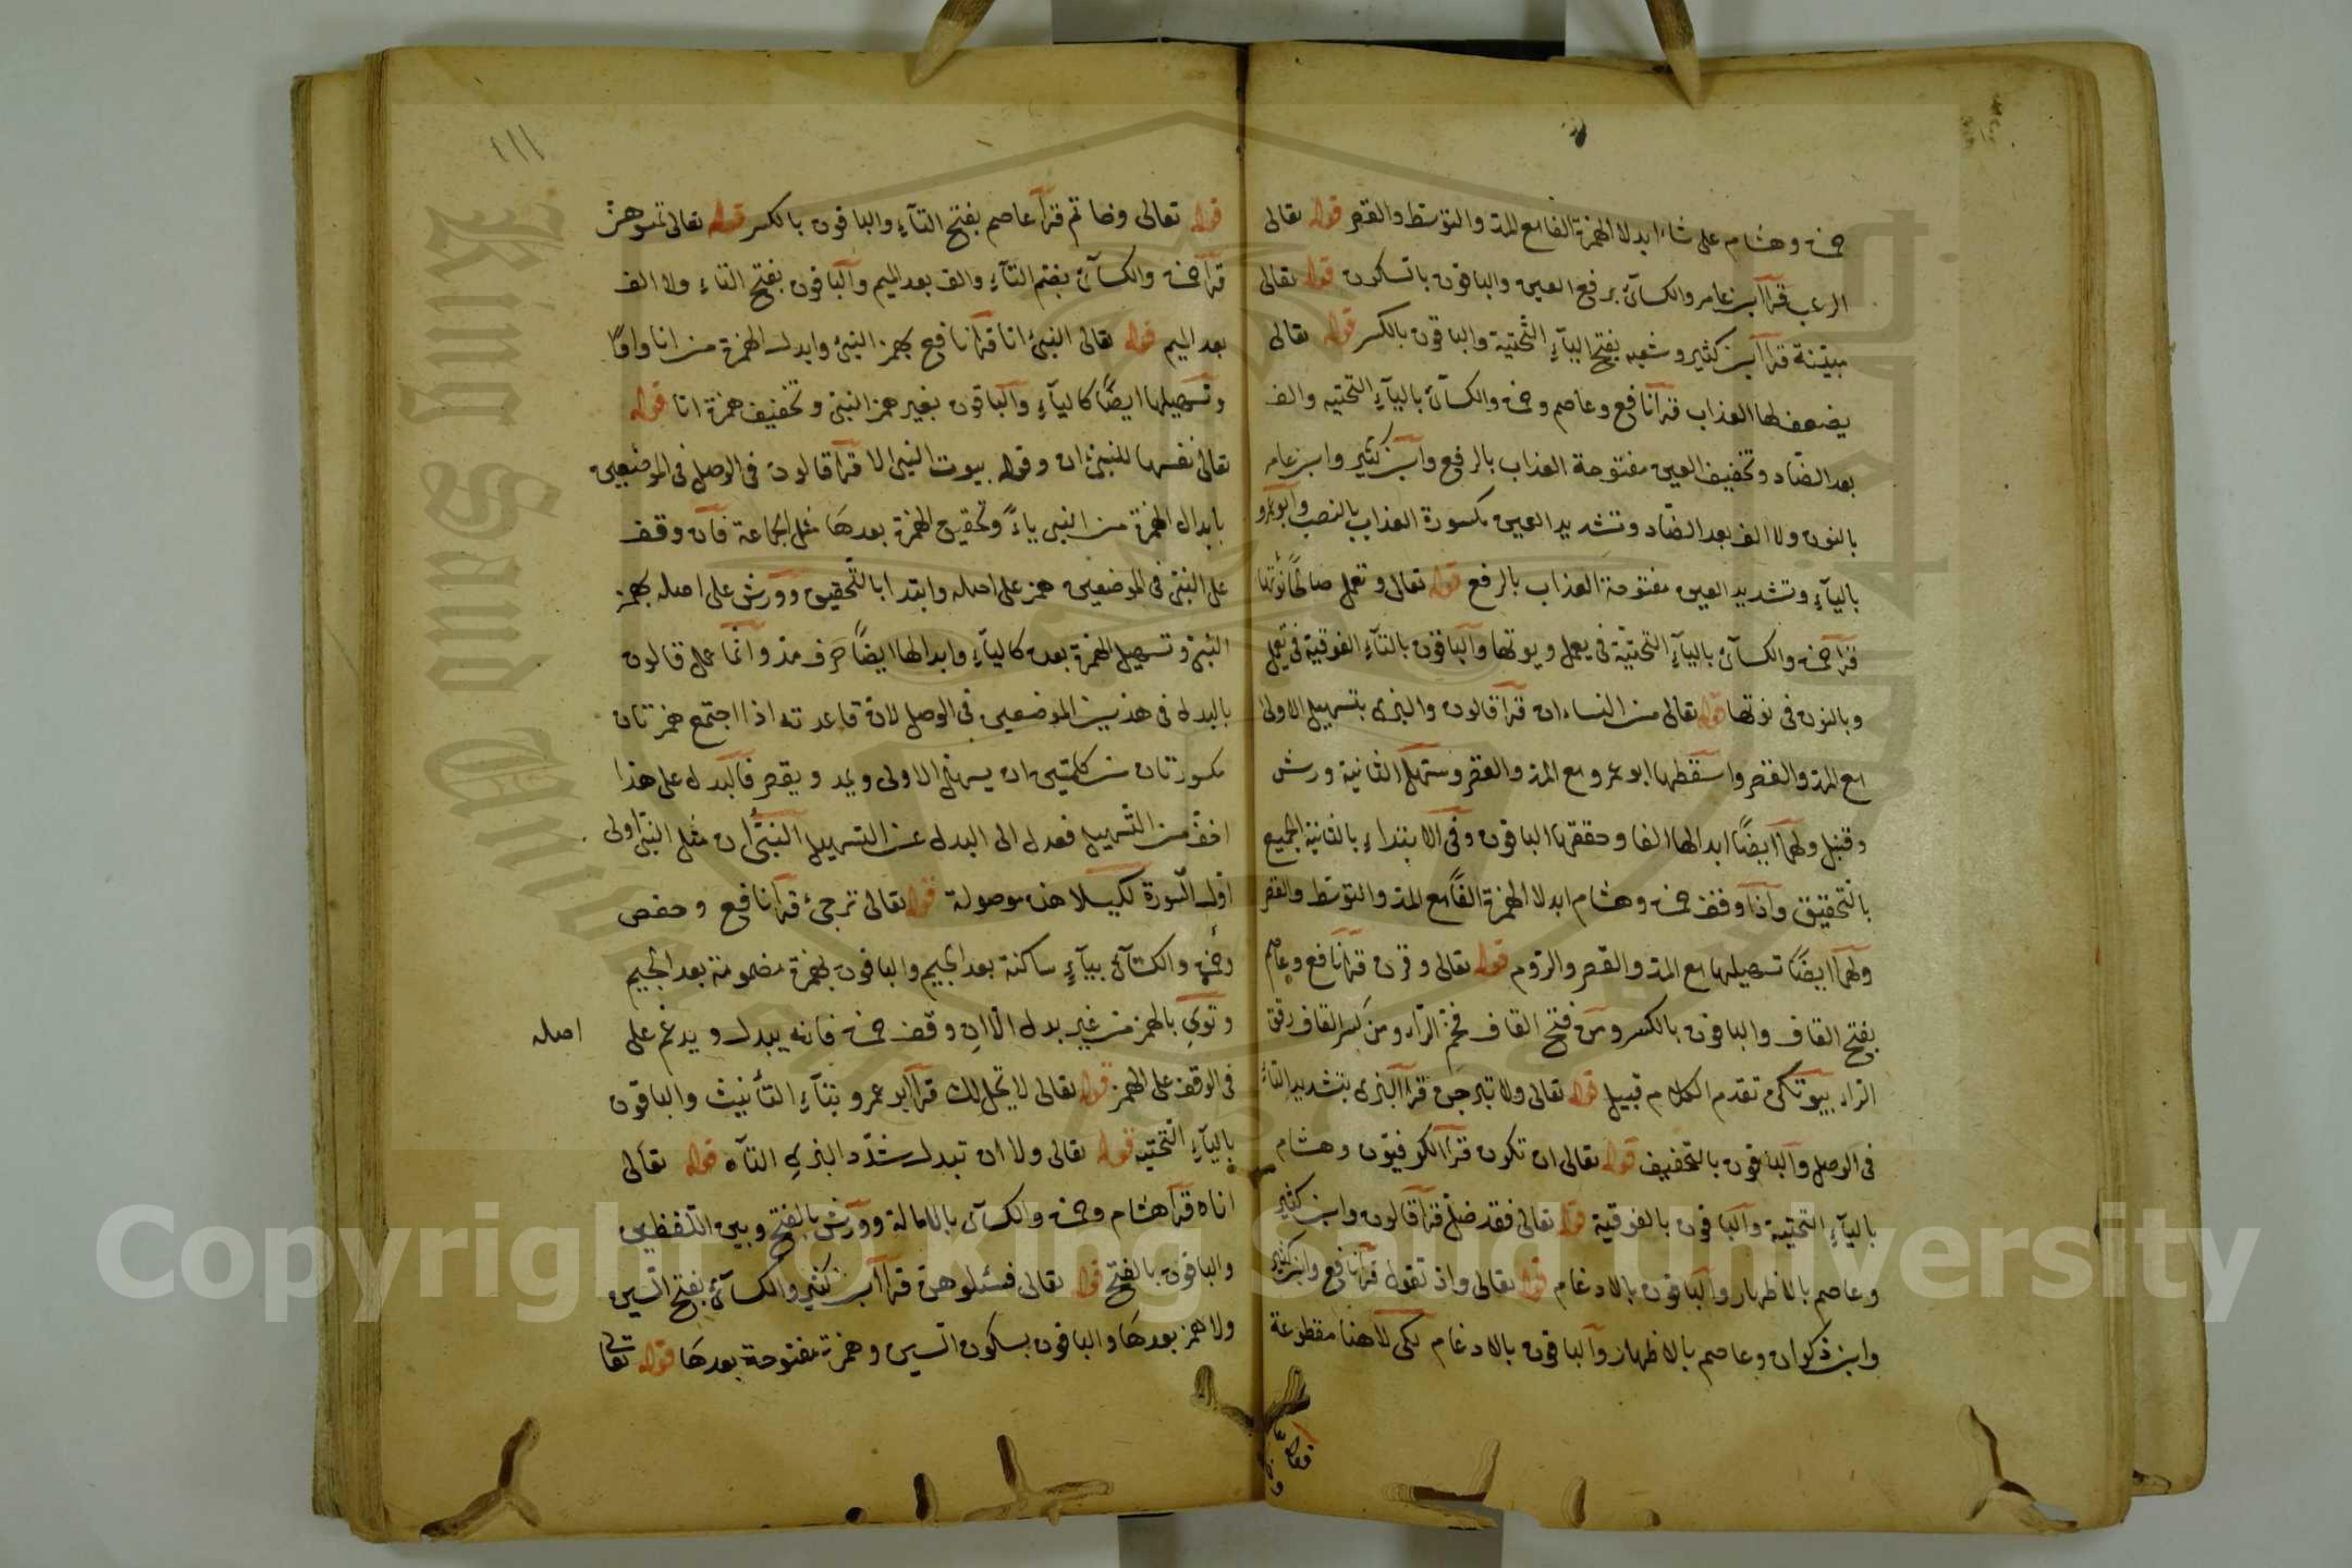 حمزة وهشام على شاء ابدلا الهمزة الفا مع المد والتوسط والقصر قوله تعالى
الرعب قرا ابن عامر والكسآئ برفع العين والباقون بالسكون قوله تعالى
مبيّنة قرا ابن كثير وشعبه بفتح اليآءِ التحتية والباقون بالكسر قوله تعالى
يضعف لها العذاب قرأ نافع وعاصم وحمزة والكسآئ باليآءِ التحتيه والف
بعد الضّاد وتخفيف العين مفتوحة العذاب بالرفع وابن كثير وابن عامر
بالنون ولا الف بعد الضّاد وتشديد العين مكسورة العذاب بالنصب وابو عمرو
باليآءِ وتشديد العين مفتوحة العذاب بالرفع قوله تعالى وتعمل صالحًا نؤتها
قرأ حمزة والكسآئ باليآءِ التحتيّة في يعمل ويوتها والباقون بالتآءِ الفوقية في تعمل
وبالنون فى نوتها قوله تعالى من النساء ان قرأ قالون والبزى بتسهيل الاولى
مع المد والقصر واسقطها ابو عمرو مع المد والقصر وسهّل الثانية ورش
وقنبل ولهما ايضًا ابدالها الفا وحققها الباقون وفى الابتداءِ بالثانية الجميع
بالتحقيق واذا وقف حمزة وهشام ابدلا الهمزة الفًا مع المد والتوسّط والقصر
ولهما ايضًا تسهيلها مع المد والقصر والرّوم قوله تعالى وقرن قرأ نافع وعاصم
بفتح القاف والباقون بالكسر ومن فتح القاف فخّم الرّاء ومن كسر القاف رقق
الرّاء بيوتكن تقدم الكلام قبيل قوله تعالى ولا تبرجن قرأ البزى بتشديد التاء
فى الوصل والباقون بالتخفيف قوله تعالى ان تكون قرأ الكوفيّون وهشام
باليآءِ التحتية والباقون بالفوقية قوله تعالى فقد ضل قرأ قالون وابن كثير
وعاصم بالاظهار والباقون بالادغام قوله تعالى واذ تقول قرأ نافع وابن كثير
وابن ذكوان وعاصم بالاظهار والباقون بالادغام لكى لا هنا مقطوعة
١١١
قوله تعالى وخاتم قرأ عاصم بفتح التآءِ والباقون بالكسر قوله تعالى تمسوهن
قرأ حمزة والكسآئ بضم التآءِ والف بعد الميم والباقون بفتح التاءِ ولا الف
بعد الميم قوله تعالى النبئ انا قرأ نافع بهمز النبئ وابدل الهمزة من انا واوًا
وتسهيلها ايضًا كاليآءِ والباقون بغير همز النبى وتخفيف همزة انا قوله
تعالى نفسها للنبئ ان وقوله بيوت النبى الا قرأ قالون فى الوصل فى الموضعين
بابدال الهمزة من النبى ياءً وتحقيق الهمزة بعدها مثل الجماعة فان وقف
على النبى فى الموضعين همز على اصله وابتدا بالتّحقيق وورش على اصله بهمز
النبئ وتسهيل الهمزة بعده كاليآءِ وابدالها ايضًا حرف مد وانّما عمل قالون
بالبدل فى هذين الموضعين فى الوصل لان قاعدته اذا اجتمع همزتان
مكسورتان من كلمتين ان يسهل الاولى ويمد ويقصر فالبدل على هذا
اخفّ من التّسهيل فعدل الى البدل عن التسهيل النبئ ان مثل النبئ اولى
اوّل السّورة لكيلا هذه موصولة قوله تعالى ترجئ قرأ نافع وحفص
وحمزة والكسآئ بيآءٍ ساكنة بعد الجيم والباقون بهمزة مضمومة بعد الجيم
وتوى بالهمز من غير بدل الا ان وقف حمزة فانه يبدل ويدغم على
اصله
فى الوقف على الهمز قوله تعالى لا يحل لك قرأ ابو عمرو بتآءِ التأنيث والباقون
باليآءِ التّحتيّة قوله تعالى ولا ان تبدل شدّد البزى التآء قوله تعالى
اناه قرأ هشام وحمزة والكسآئ بالامالة وورش بالفتح وبين اللّفظين
والباقون بالفتح قوله تعالى فسئلوهن قرأ ابن كثير والكسآئ بفتح السّين
ولا همز بعدها والباقون بسكون السّين وهمزة مفتوحة بعدها قوله تعالى
Copyright © King Saud University
King Saud University